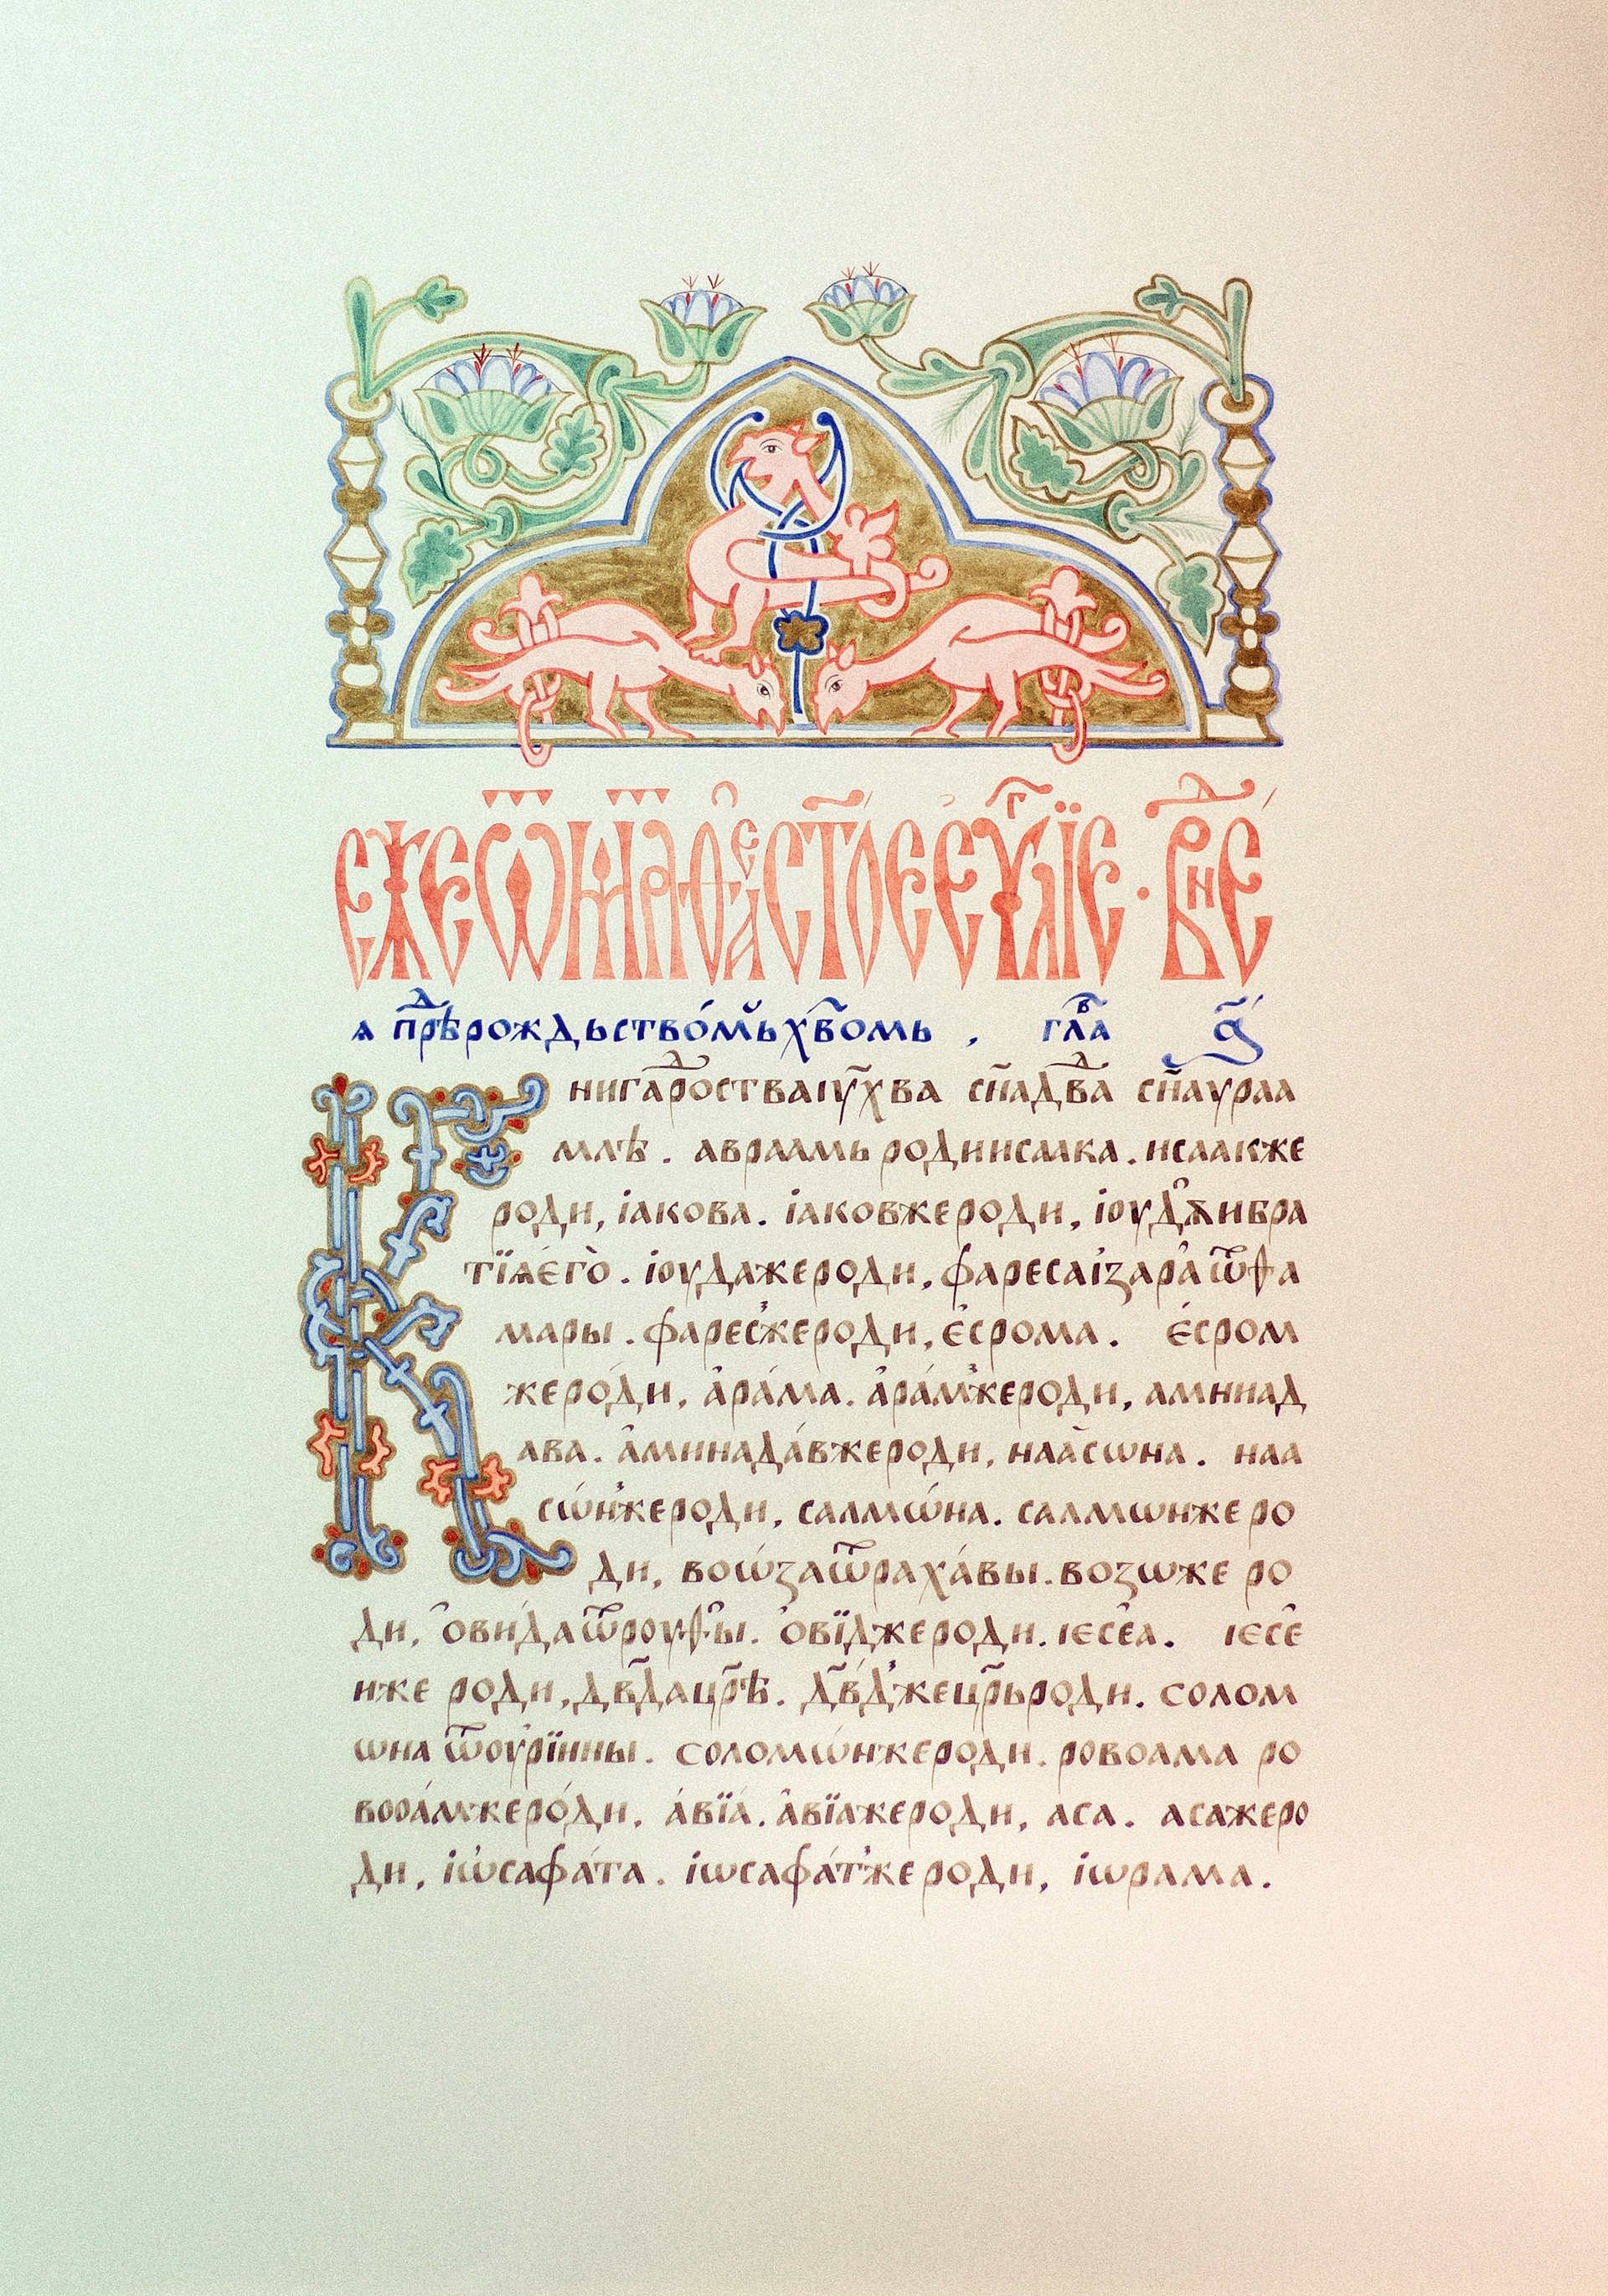 ЕЖЕ Ѿ МАѲЕА СТОЕ ЕѴⷢ҇ЛЇЕ · В НЕ
ꙗ прⷣѣ рождьствóмъ хв҃омь , глⷡ҇а а҃
Книга рⷣоства іу҃ хва сн҃а дв҃ⷣа сн҃а аураа
млѣ . авраамь роди исаака . исаак же
роди, іакова . іаков же роди, іоуд̾ѧ и бра
тїѧ єгò . іоуда же роди, фареса і зара̀ ѿ ѳа
мары . фарес̾ же роди, є́срома . є́сром
же рóди, а̓рáма . а̓рáм̾ же роди, аминад
ава . а̓минадáв же роди, наа̀сѡна . наа
сѡ́н̾ же роди, салмѡ́на . салмѡн же ро
ди, воѡ́за ѿ рахáвы . возѡ же ро
ди, ѻ̓ви́да ѿ роуѳ̾ы . о̓вїд же роди . ієсе̓а . ієсе̓
и же роди , дв҃да цр҃ѣ . дв҃д̾ же цр҃ь роди . солом
ѡна ѿ оурїины . соломѡ́н же роди . ровоама ро
вооáм же рóди, áвїá . а̓вїа же роди, аса . аса же ро
ди , іѡ̓сафáта . іѡсафáт̾ же роди, іѡрама .